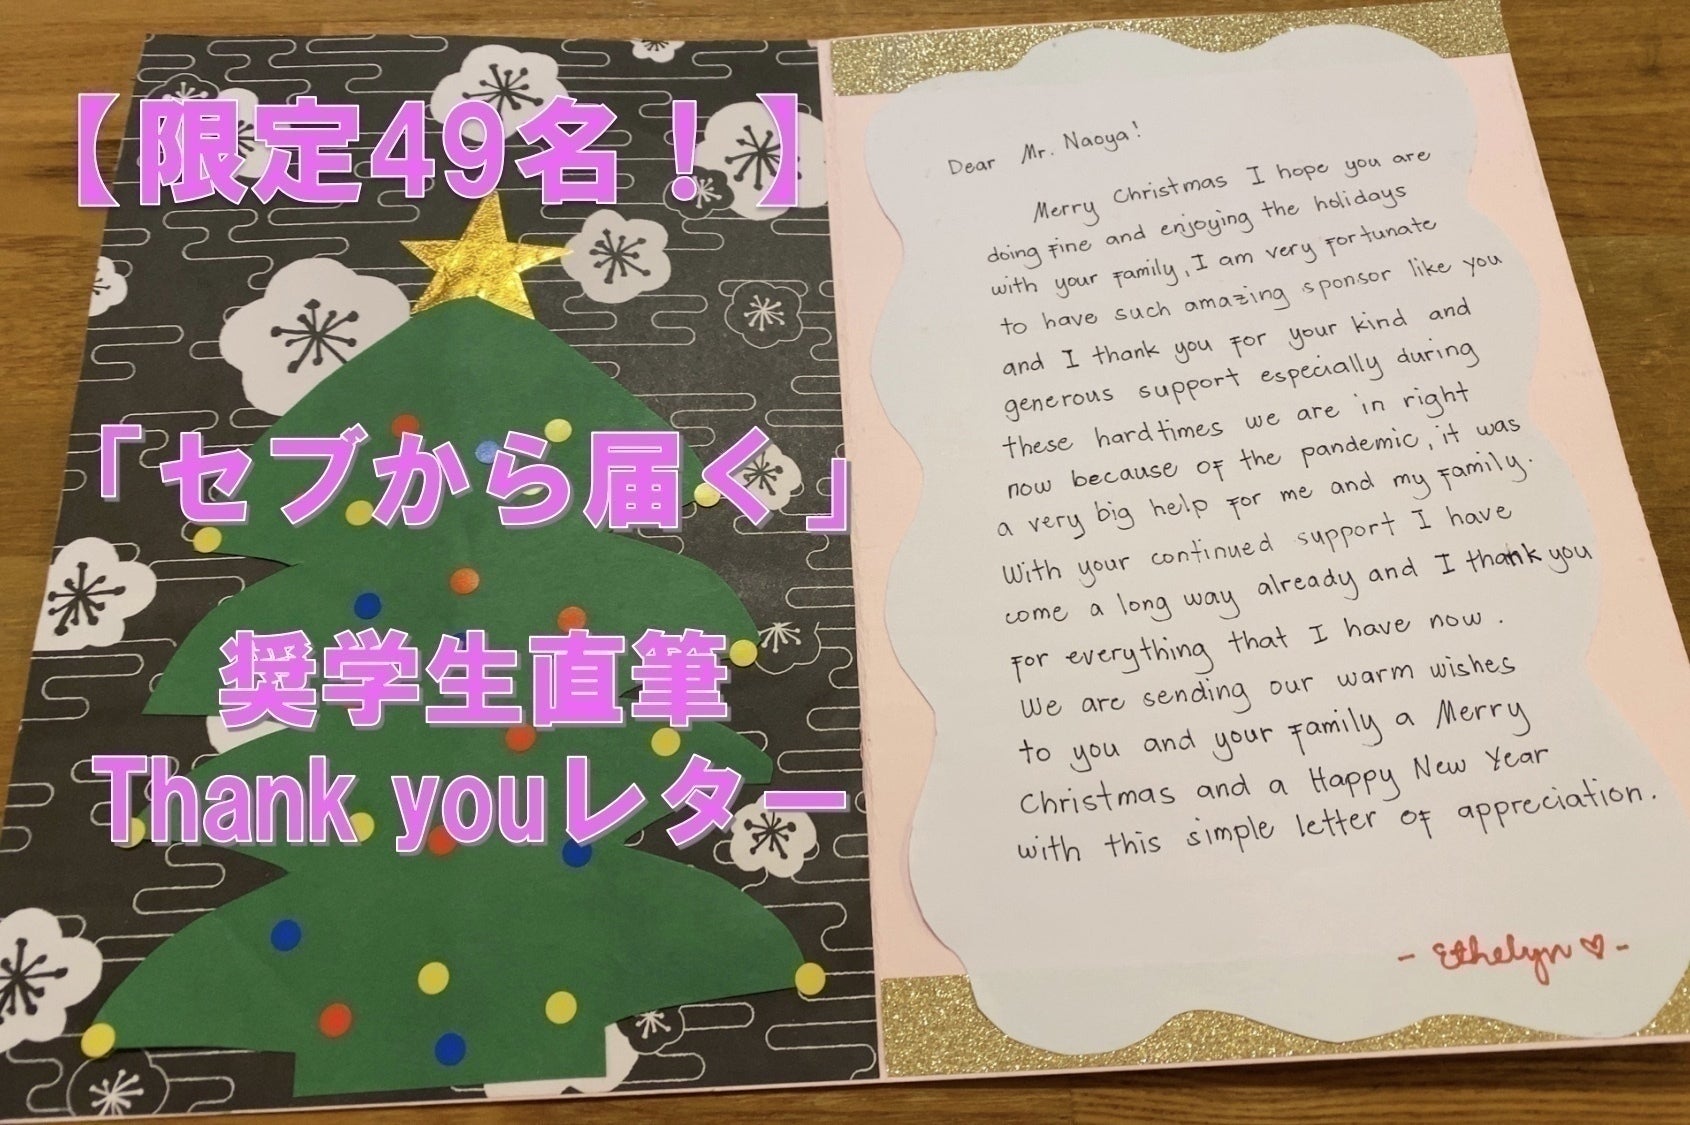 【限定49名！】
「セブから届く」
奨学生直筆
Thank youレター
Dear Mr. Naoya!
Merry Christmas I hope you are
doing fine and enjoying the holidays
with your family, I am very fortunate
to have such amazing sponsor like you
and I thank you for your kind and
generous support especially during
these hardtimes we are in right
now because of the pandemic, it was
a very big help for me and my family.
With your continued support I have
come a long way already and I thank you
for everything that I have now.
We are sending our warm wishes
to you and your family a Merry
Christmas and a Happy New Year
with this simple letter of appreciation.
- Ethelyn ♡ -